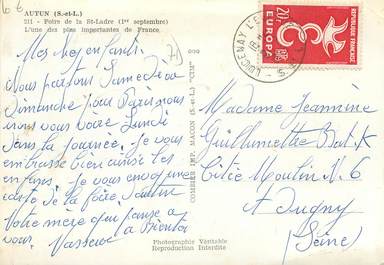 6 €
AUTUN (S.-et-L.)
211 - Foire de la St-Ladre (1er septembre)
L'une des plus importantes de France
71
Mes chers enfants.
Nous partons Samedi a
Dimanche pour Paris nous
irons vous voire Lundi
dans la journée. Je vous
embrasse bien ainsi les
enfants. Je vous envoi une
carte de la foire d'autun
Votre mère qui pense a
vous. Vasseur a Bientot
COMBIER IMP. MACON (S.-et-L.) "CIM"
Photographie Véritable
Reproduction Interdite
LUCENAY L'E
S.
20F
POSTES
RÉPUBLIQUE FRANÇAISE
Madame Jeannine
Guillemette Bat. X
Citée Moulin N. 6
A Dugny
(Seine)